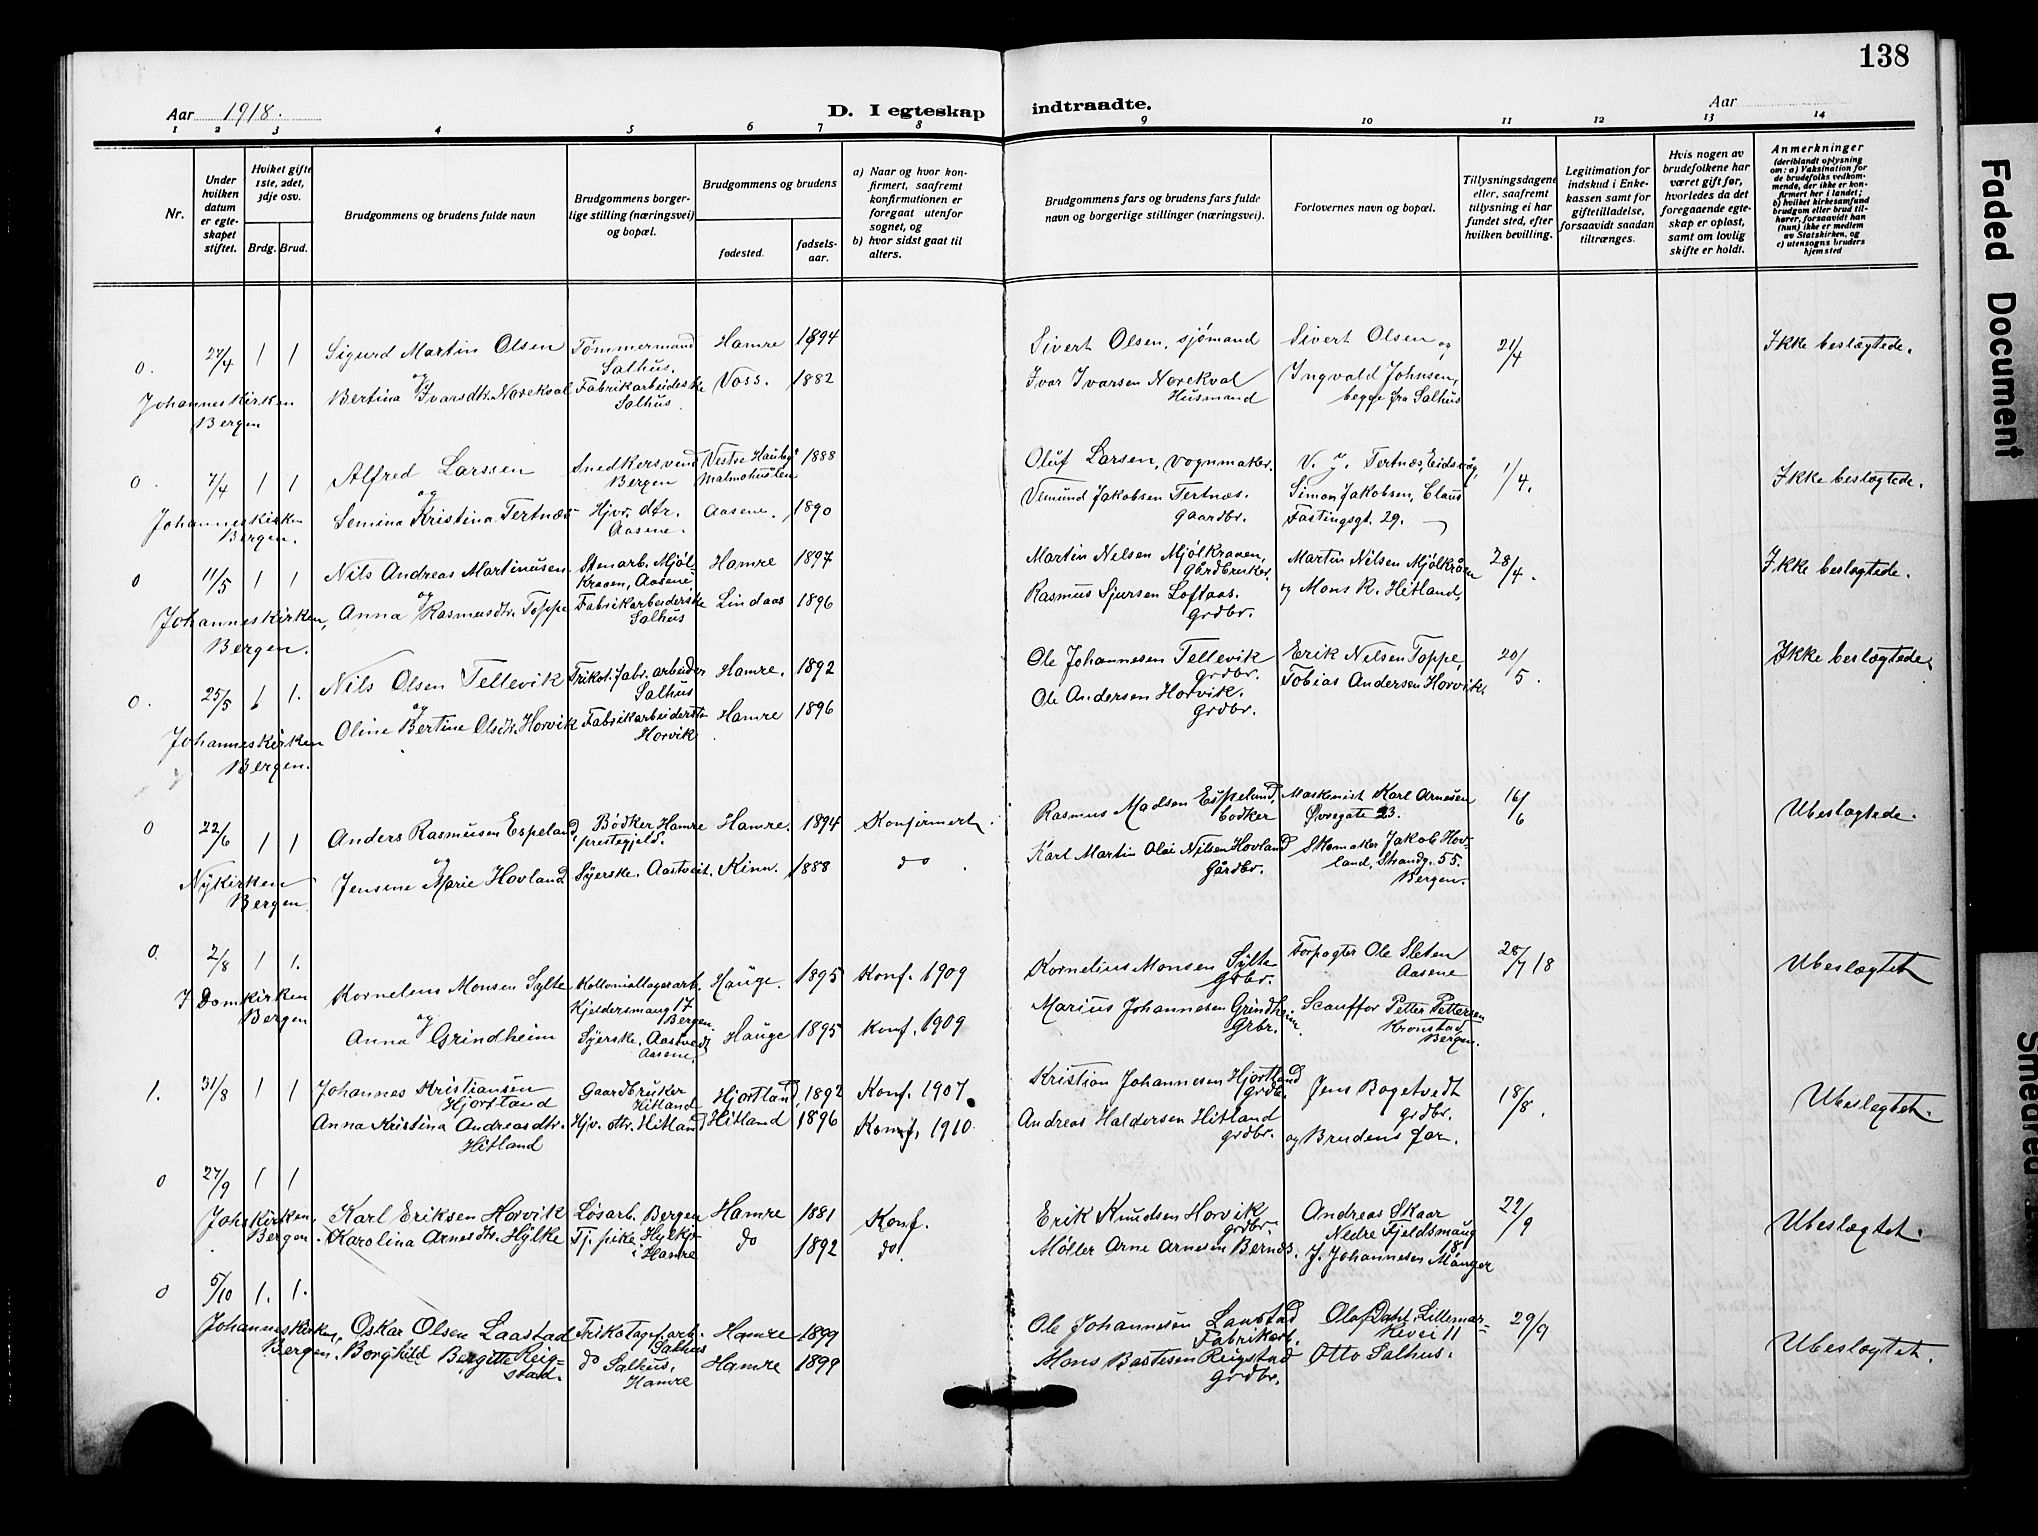 138
Aar 1918.
D. I egteskap indtraadte.
Aar
1 2 3 4 5 6 7 8 9 10 11 12 13 14
Nr.
Under hvilken datum er egteskapet stiftet.
Hviket gifte 1ste, 2det, 3dje osv.
Brdg. Brud.
Brudgommens og brudens fulde navn
Brudgommens borgerlige stilling (næringsvei) og bopæl.
Brudgommens og brudens
fødested.
fødselsaar.
a) Naar og hvor konfirmert, saafremt konfirmationen er foregaat utenfor sognet, og
b) hvor sidst gaat til alters.
Brudgommens fars og brudens fars fulde navn og borgerlige stillinger (næringsvei).
Forlovernes navn og bopæl.
Tillysningsdagene eller, saafremt tillysning ei har fundet sted, efter hvilken bevilling.
Legitimation for indskud i Enkekassen samt for giftetilladelse, forsaavidt saadan tiltrænges.
Hvis nogen av brudefolkene har været gift før, hvorledes da det foregaaende egteskap er opløst, samt om lovlig skifte er holdt.
Anmerkninger
(deriblandt oplysning om: a) Vaksination for de brudefolks vedkommende, der ikke er konfirmert her i landet; b) hvilket kirkesamfund brudgom eller brud tilhører, forsaavidt han (hun) ikke er medlem av Statskirken, og c) utensogns bruders hjemsted
0. 27/4 1 1 Sigurd Martin Olsen Tømmermand Salhus. Hamre 1894 Sivert Olsen, sjømand Sivert Olsen og 21/4 Ikke beslægtede.
Johanneskirken Bergen
og Bertina Ivarsdtr. Norekval Fabrikarbeiderske Salhus. Voss. 1882 Ivar Ivarsen Norekval Husmand Ingvald Johnsen, begge fra Salhus
0. 7/4 1 1 Alfred Larssen Snedkersvend Bergen Malmøhuslen 1888 Oluf Larsen, vognmaker. Tertnæs, Eidsvåg, 1/4. Ikke beslægtede.
Johanneskirken Bergen.
og Semina Kristina Tertnæs Hjv. dtr. Aasene. Aasene. 1890 Vemund Jakobsen Tertnæs. gaardbr. Simon Jakobsen, Claus Fastingsgt. 29.
0 11/5 1 1 Nils Andreas Martinusen Stenarb. Mjølkraaen, Aasene. Hamre 1897 Martin Nelsen Mjølkraaen, gårdbruker. Martin Nilsen Mjølkråen 28/4. Ikke beslægtede.
Johanneskirken, Bergen.
og Anna Rasmusdtr. Toppe Fabrikarbeiderske Salhus Lindaas 1896 Rasmus Sjursen Loftaas. grdbr. og Mons R. Hitland,
0. 25/5 1 1. Nils Olsen Tellevik Trikot. fabr. arbeider Salhus Hamre. 1892 Ole Johannesen Tellevik grdbr. Erik Nelsen Toppe, 20/5. Ikke beslægtede.
Johanneskirken Bergen.
og Oline Bertine Olsdtr. Horvik Fabrikarbeiderske Horvik Hamre 1896 Ole Andersen Horvik. grdbr. Tobias Andersen Horvik.
0 22/6 1 1 Anders Rasmusen Espeland, Bødker Hamre prestegjeld. Hamre. 1894 Konfirmert. Rasmus Madsen Espeland, bødker Maskenist Karl Arnesen Øvregate 23. 16/6 Ubeslægtede.
Nykirken Bergen
og Jensene Marie Hovland Syerske. Aastveit. Kinn. 1888 do Karl Martin Olai Nilsen Hovland Gårdbr. Skomaker Jakob Hovland, Strandg. 55. Bergen.
0. 2/8 1 1. Kornelius Monsen Sylte Koloniallagerarb. Kjeldersmaug 17 Bergen. Hauge. 1895 Konf. 1909 Kornelius Monsen Sylte grbr. Forpagter Ole Sleten Aasene 28/7 18 Ubeslægtet
I Domkirken Bergen
og Anna Grindheim Syerske. Aastvedt Aasene. Hauge 1895 Konf. 1909 Marius Johannesen Grindheim. Grbr. Scauffør Petter Pettersen Kronstad Bergen.
1. 31/8 1 1 Johannes Kristiansen Hjortland Gaardbruker Hitland Hjortland, 1892 Konf. 1907. Kristian Johannesen Hjortland grdb. Jens Bogetvedt grdbr. 18/8. Ubeslægtet.
Anna Kristina Andreasdtr. Hitland Hjv. dtr. Hitland Hitland 1896 Konf. 1910. Andreas Haldersen Hitland grdbr. og Brudens far.
0 27/9 1 1
Johs kirken, Bergen. Karl Eriksen Horvik Løsarb. Bergen Hamre 1881 Konf. Erik Knudsen Horvik grdbr. Andreas Skaar Nedre Fjeldsmaug 18 22/9 Ubeslægtet.
Karolina Arnesdtr. Hylke Tj. pike. i Hamre do 1892 do. Møller Arne Arnesen Bernæs. J. Johannesen Manger
0 5/10 1. 1.
Johanneskirken, Bergen. Oskar Olsen Laastad Trikotagefarb. Salhus Hamre 1899 Ole Johannesen Laastad Fabrikarb. Olaf Dahl, 11 29/9 Ubeslægtet.
Borghild Bergitte Reigstad. do Salhus, Hamre Hamre 1899 Mons Bastesen Reigstad Grdbr. Otto Salhus.
Faded Document
Smeared